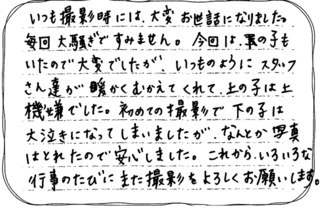 いつも撮影時には、大変お世話になりました。
毎回大騒ぎですみません。今回は、裏の子も
いたので大変でしたが、いつものように スタッフ
さん達が暖かくむかえてくれて、上の子は上
機嫌でした。初めての撮影で下の子は
大泣きになってしまいましたが、なんとか写真
はとれたので安心しました。これから、いろいろな
行事のたびにまた撮影をよろしくお願いします。